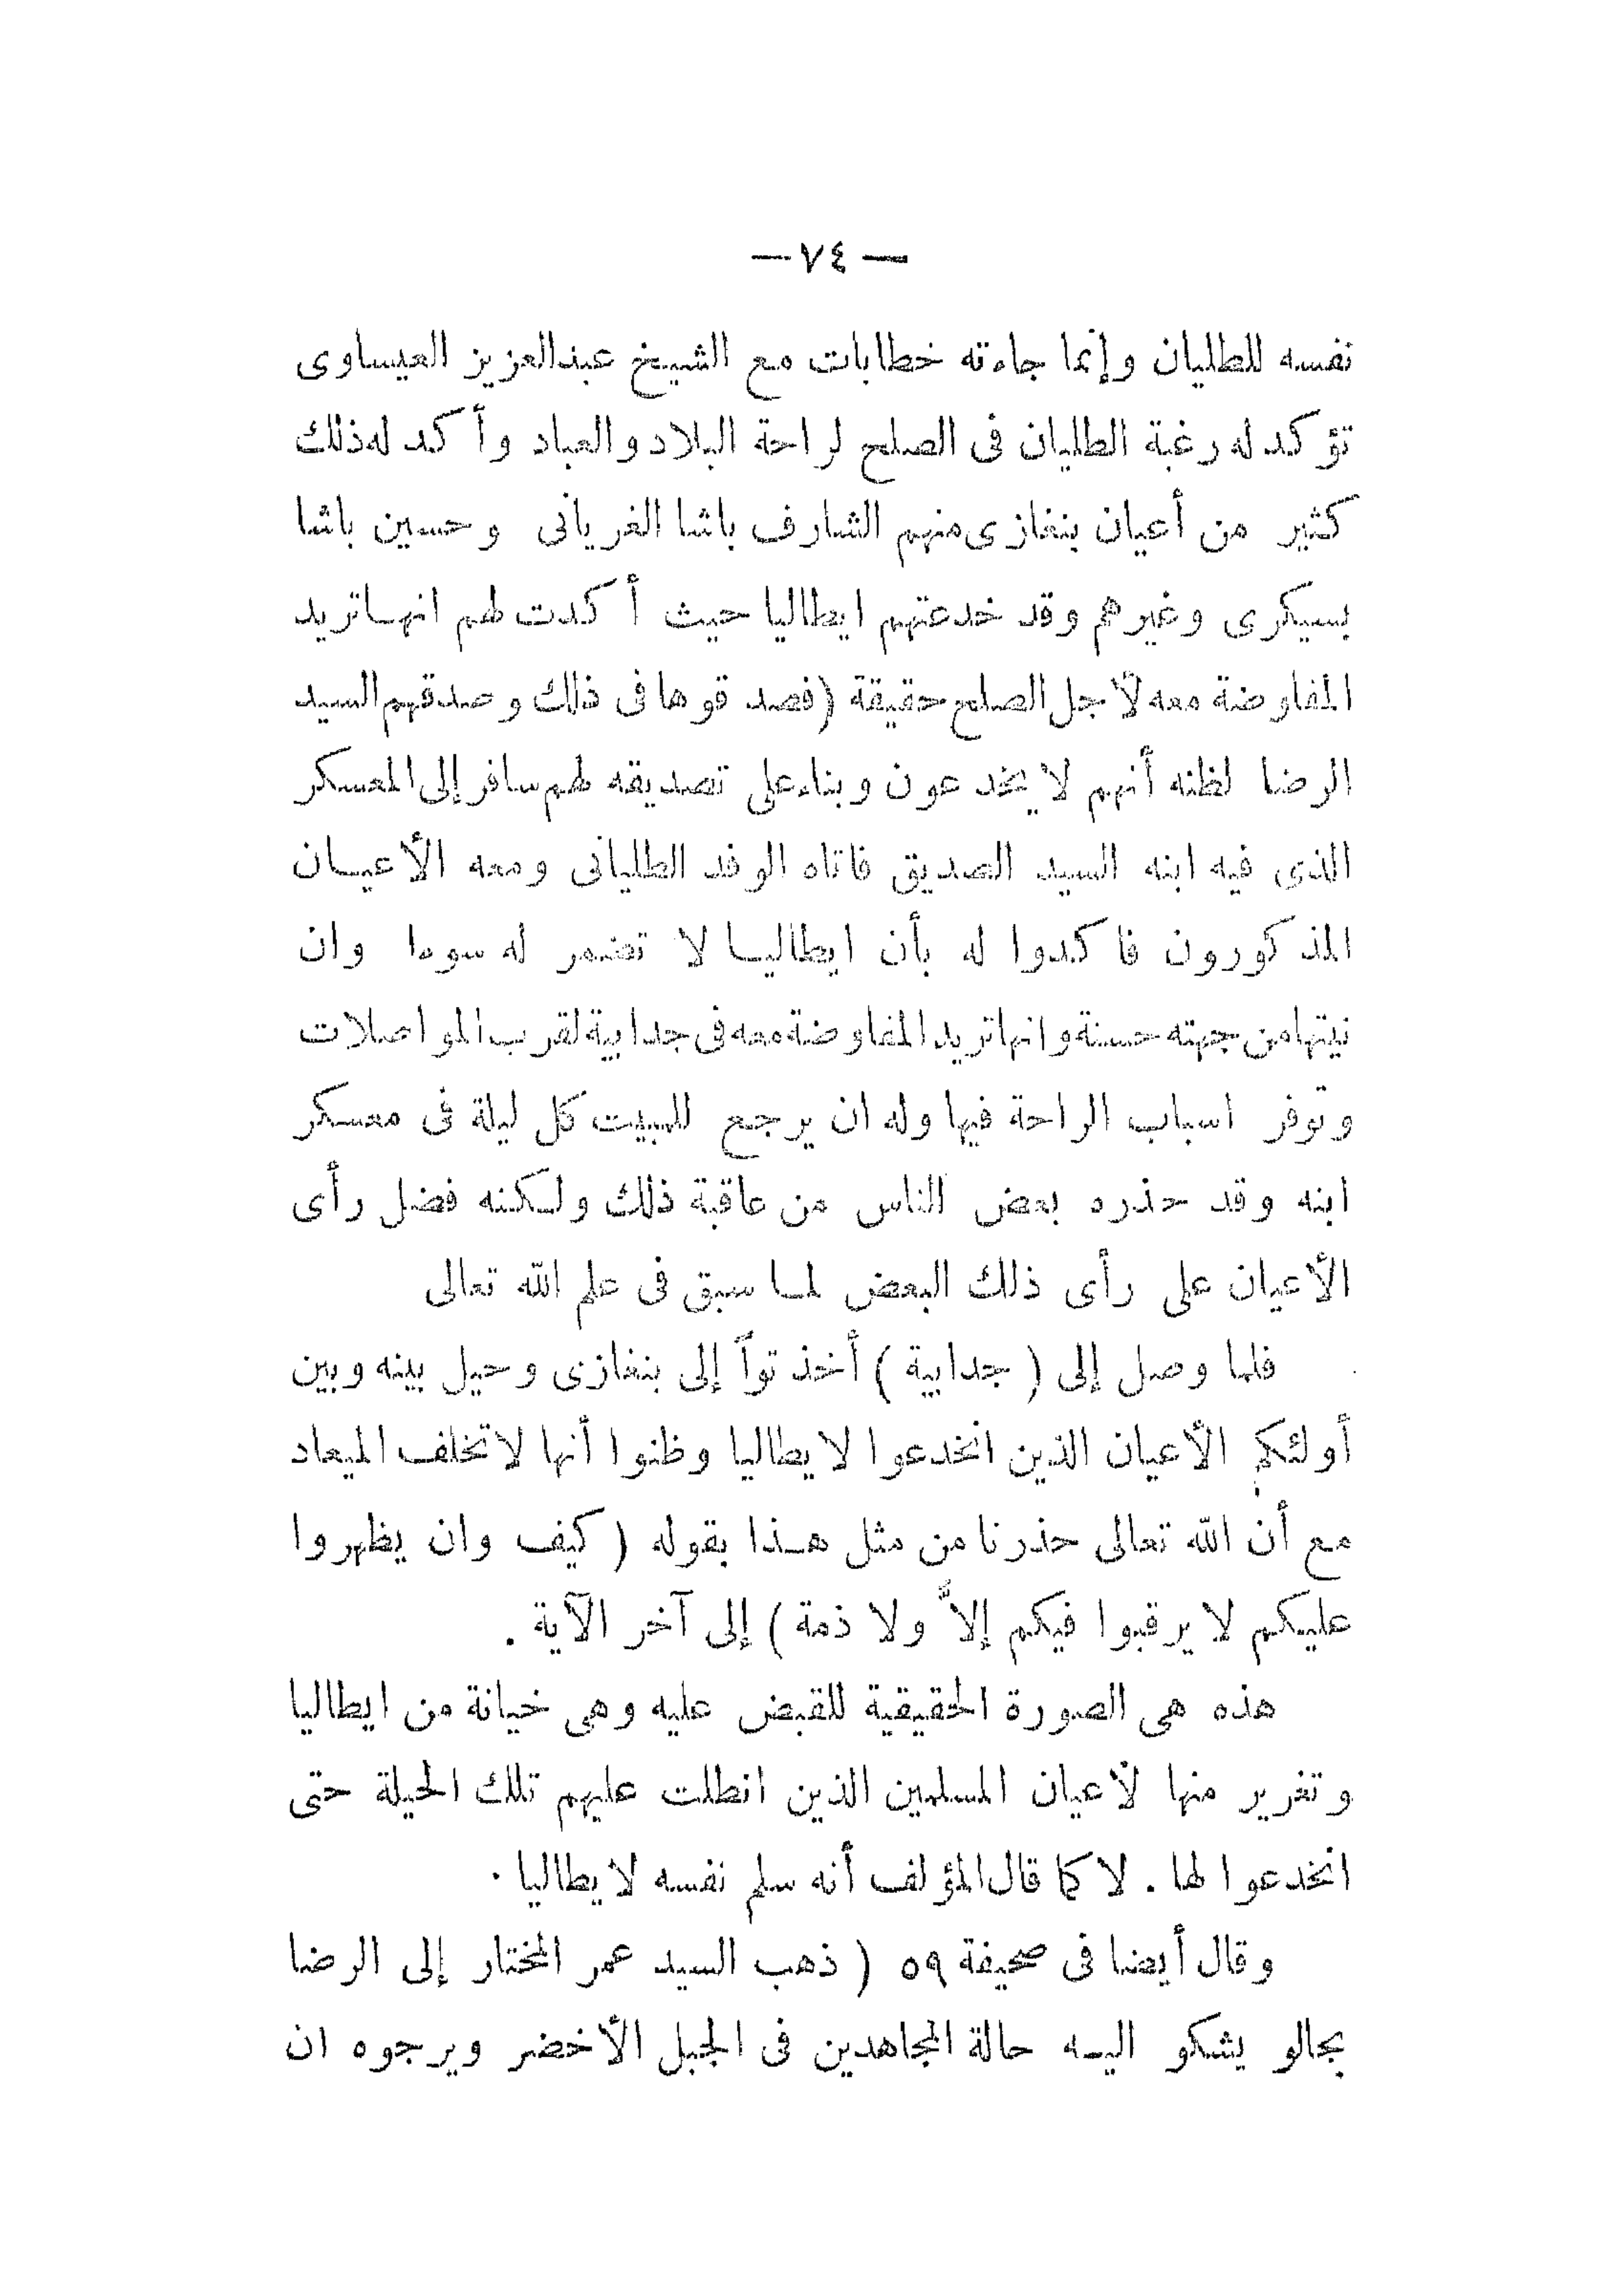 — ٧٤ —
نفسه للطليان وإنما جاءته خطابات مع الشيخ عبدالعزيز العيساوى
تؤكد له رغبة الطليان فى الصلح لراحة البلاد والعباد وأكد له ذلك
كثير من أعيان بنغازى منهم الشارف باشا الغريانى وحسين باشا
بسيكرى وغيرهم وقد خدعتهم ايطاليا حيث أكدت لهم انها تريد
المفاوضة معه لأجل الصلح حقيقة (فصدقوها فى ذلك وصدقهم السيد
الرضا لظنه أنهم لا يخدعون وبناء على تصديقه لهم سافر إلى المعسكر
الذى فيه ابنه السيد الصديق فاتاه الوفد الطليانى ومعه الأعيان
المذكورون فاكدوا له بأن ايطاليا لا تضمر له سوءا وان
نيتها من جهته حسنة وانها تريد المفاوضة معه فى جدابية لقرب المواصلات
وتوفر اسباب الراحة فيها وله ان يرجع للمبيت كل ليلة فى معسكر
ابنه وقد حذره بعض الناس من عاقبة ذلك ولكنه فضل رأى
الأعيان على رأى ذلك البعض لما سبق فى علم الله تعالى
فلما وصل إلى (جدابية) أخذ تواً إلى بنغازى وحيل بينه وبين
أولئكم الأعيان الذين انخدعوا لايطاليا وظنوا أنها لا تخلف الميعاد
مع أن الله تعالى حذرنا من مثل هذا بقوله (كيف وان يظهروا
عليكم لا يرقبوا فيكم إلاًّ ولا ذمة) إلى آخر الآية .
هذه هى الصورة الحقيقية للقبض عليه وهى خيانة من ايطاليا
وتغرير منها لأعيان المسلمين الذين انطلت عليهم تلك الحيلة حتى
انخدعوا لها . لا كما قال المؤلف أنه سلم نفسه لايطاليا .
وقال أيضا فى صحيفة ٥٩ (ذهب السيد عمر المختار إلى الرضا
بجالو يشكو اليه حالة المجاهدين فى الجبل الأخضر ويرجوه ان